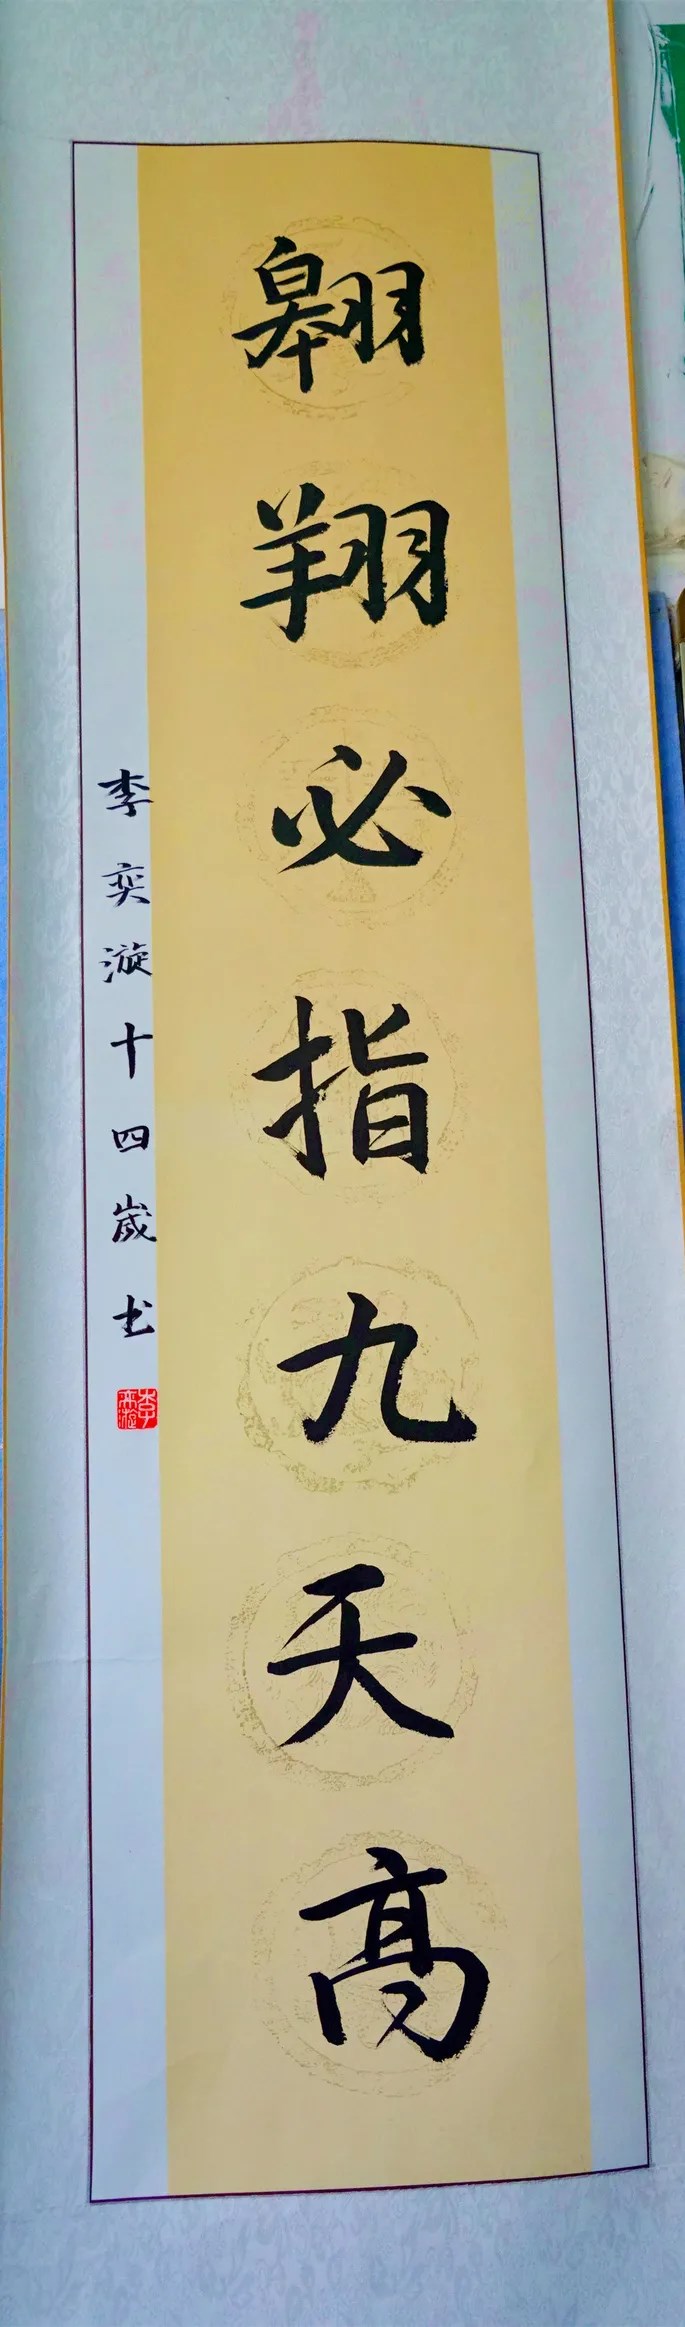 翱翔必指九天高
李奕漩十四歲书
李奕漩